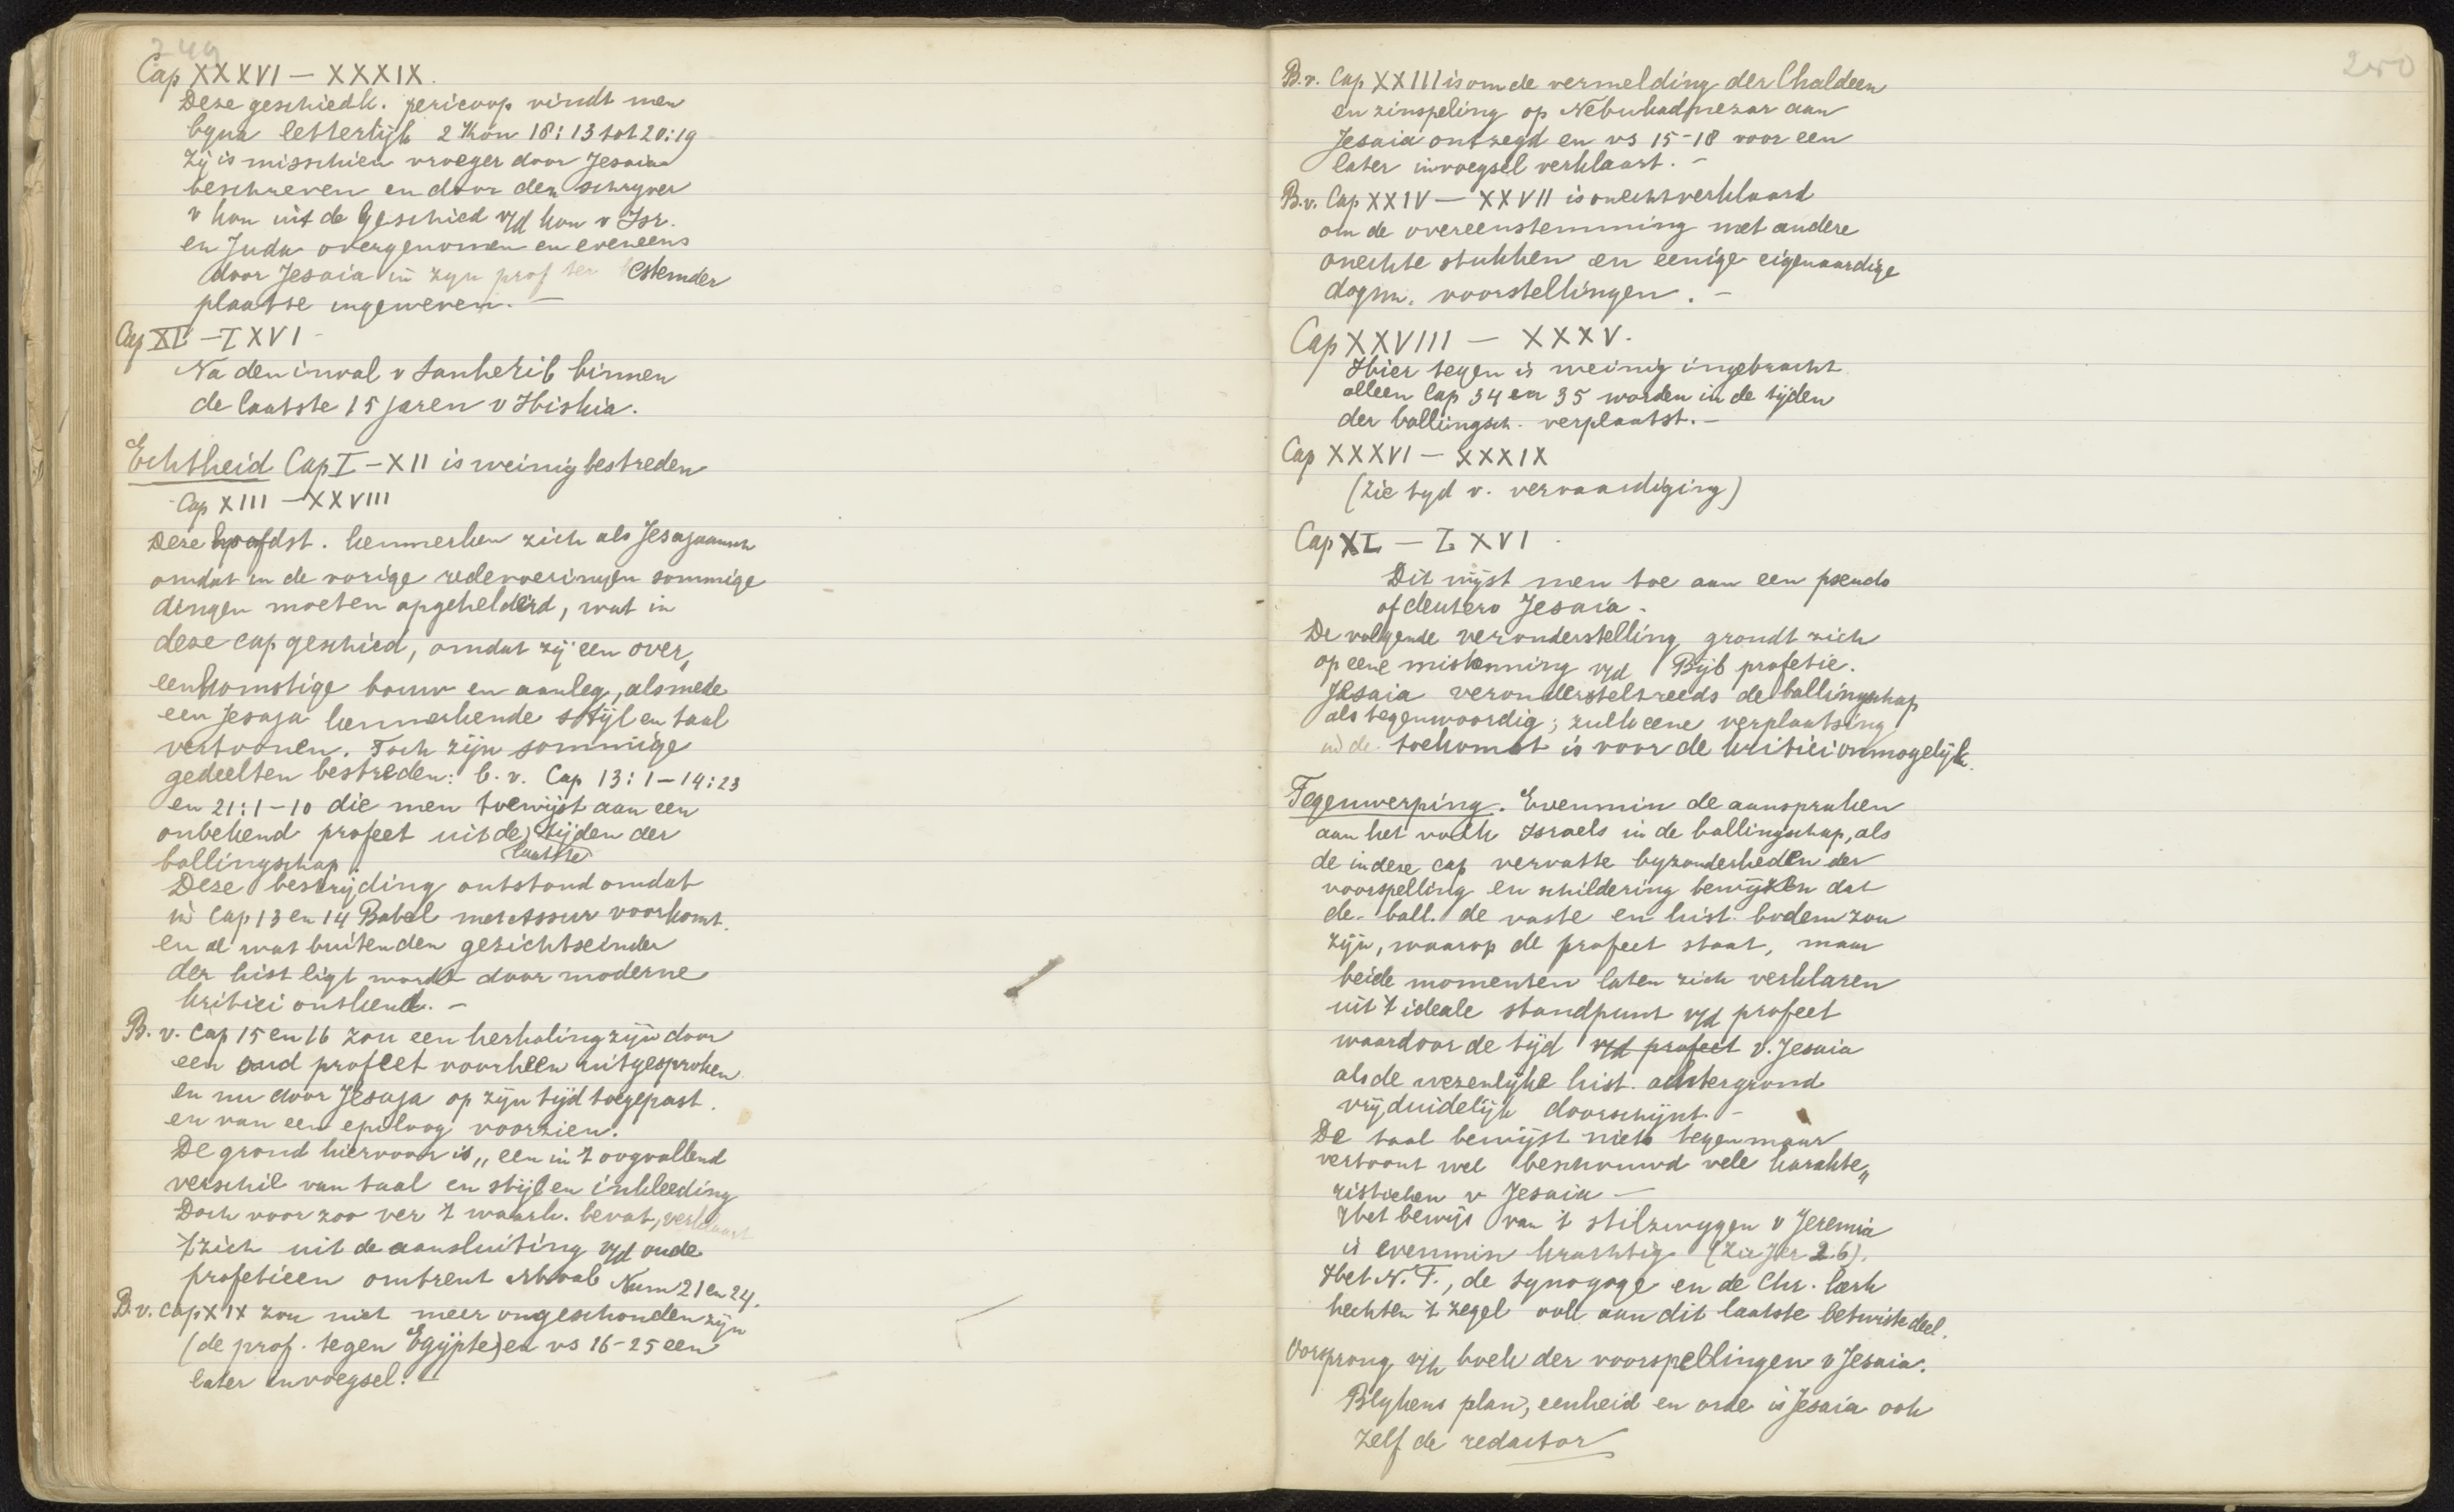 249
Cap XXXVI — XXXIX.
Deze geschiedk. pericoop vindt men
byna letterlijk 2 Kon 18:13 tot 20:19
Zij is misschien vroeger door Jesaia
beschreven en door den schryver
v kon uit de Geschied v/d kon v Isr.
en Juda overgenomen en eveneens
door Jesaia in zyn prof ter bestemder
plaatse ingeweven. —
Cap XL — LXVI -
Na den inval v Sanherib binnen
de laatste 15 jaren v Hiskia.
Echtheid Cap I — XII is weinig bestreden
Cap XIII — XXVIII
Deze hoofdst. kenmerken zich als Jesajaansch
omdat in de vorige redevoeringen sommige
dingen moeten opgehelderd, wat in
deze cap geschied, omdat zij een over„
eenkomstige bouw en aanleg, alsmede
een Jesaja kenmerkende stijl en taal
vertoonen. Toch zijn sommige
gedeelten bestreden: b.v. Cap 13:1—14:23
en 21:1—10 die men toewijst aan een
onbekend profeet uit de tijden der
(laatste)
ballingschap.
Deze bestrijding ontstond omdat
in Cap 13 en 14 Babel met Assur voorkomt.
en al wat buiten den gezichtseinder
der hist ligt wordt door moderne
kritici ontkend. —
B.v. Cap 15 en 16 zou een herhaling zijn door
een oud profeet voorheen uitgesproken
en nu door Jesaja op zijn tijd toegepast.
en van een epiloog voorzien.
De grond hiervoor is „een in 't oogvallend
verschil van taal en stijl en inkleeding
Doch voor zoo ver 't waarh. bevat, verklaart
't zich uit de aansluiting v/d oude
profetieen omtrent Moab Num 21 en 24.
B.v. Cap XIX zou niet meer ongeschonden zijn
(de prof. tegen Egijpte) en vs 16-25 een
later invoegsel. —
250
B.v. Cap XXIII is om de vermelding der Chaldeen
en zinspeling op Nebukadnezar aan
Jesaia ontzegd en vs 15-18 voor een
later invoegsel verklaart. —
B.v. Cap XXIV — XXVII is onecht verklaard
om de overeenstemming met andere
onechte stukken en eenige eigenaardige
dogm. voorstellingen. —
Cap XXVIII — XXXV.
Hier tegen is weinig ingebracht
alleen Cap 34 en 35 worden in de tijden
der ballingsch. verplaatst. —
Cap XXXVI — XXXIX
(zie tyd v. vervaardiging)
Cap XL — LXVI -
Dit wijst men toe aan een pseudo
of deutero Jesaia.
De volgende veronderstelling grondt zich
op eene miskenning v/d Bijb profetie.
Jesaia veronderstelt reeds de ballingschap
als tegenwoordig; zulk eene verplaatsing
in de toekomst is voor de kritici onmogelijk.
Tegenwerping. Evenmin de aanspraken
aan het volk Israels in de ballingschap, als
de in deze cap vervatte byzonderheden der
voorspelling en schildering bewijzen dat
de ball. de vaste en hist. bodem zou
zijn, waarop de profeet staat, maar
beide momenten laten zich verklaren
uit 't ideale standpunt v/d profeet
waardoor de tijd v/d profeet v. Jesaia
als de wezenlijke hist. achtergrond
vrij duidelijk doorschijnt. —
De taal bewijst niets tegen maar
vertoont wel beschouwd vele karakte„
ristieken v Jesaia —
Het bewijs van 't stilzwygen v Jeremia
is evenmin krachtig (Zie Jer 26).
Het N.T., de synagoge en de Chr. kerk
hechten 't zegel ook aan dit laatste betwiste deel.
Oorsprong v/h boek der voorspellingen v Jesaia.
Blykens plan, eenheid en orde is Jesaia ook
zelf de redactor